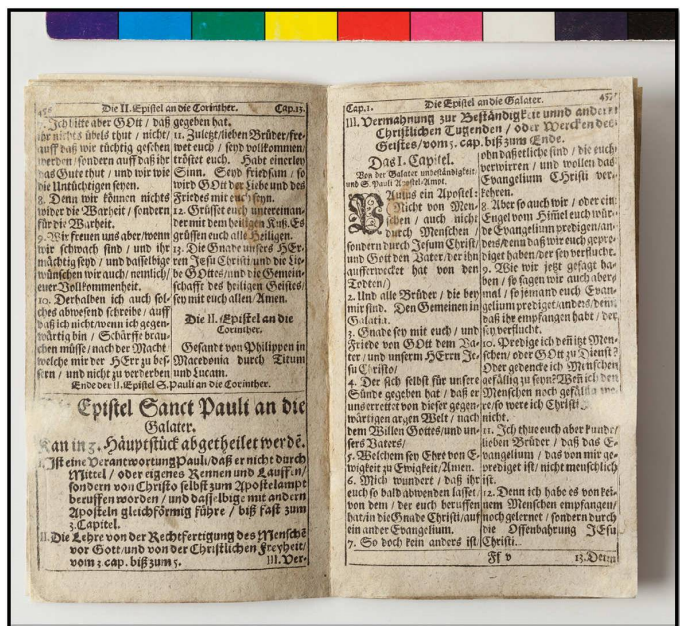 456
Die II. Epistel an die Corinther. Cap.13.
7. Ich bitte aber GOtt / daß
ihr nichts übels thut / nicht /
auff daß wir tüchtig gesehen
werden / sondern auff daß ihr
das Gute thut / und wir wie
die Untüchtigen seyen.
8. Denn wir können nichts
wider die Warheit / sondern
für die Warheit.
9. Wir freuen uns aber / wenn
wir schwach sind / und ihr
mächtig seyd / und dasselbige
wünschen wir auch / nemlich /
euer Vollkommenheit.
10. Derhalben ich auch sol-
ches abwesend schreibe / auff
daß ich nicht / wenn ich gegen-
wärtig bin / Schärffe brau-
chen müsse / nach der Macht
welche mir der HErr zu bes-
sern / und nicht zu verderben
gegeben hat.
11. Zuletzt / lieben Brüder / fre-
wet euch / seyd vollkommen /
tröstet euch. Habt einerley
Sinn. Seyd friedsam / so
wird GOtt der Liebe und des
Friedes mit euch seyn.
12. Grüsset euch untereinan-
der mit dem heiligen Kuß. Es
grüssen euch alle Heiligen.
13. Die Gnade unsers HEr-
ren Jesu Christi und die Lie-
be GOttes / und die Gemein-
schafft des heiligen Geistes /
sey mit euch allen / Amen.
Die II. Epistel an die
Corinther.
Gesandt von Philippen in
Macedonia durch Titum
und Lucam.
Ende der II. Epistel S. Pauli an die Corinther.
Epistel Sanct Pauli an die
Galater.
Kan in 3. Häuptstück abgetheilet werdẽ.
I. Ist eine Verantwortung Pauli / daß er nicht durch
Mittel / oder eigenes Rennen und Lauffen /
sondern von Christo selbst zum Apostelampt
beruffen worden / und dasselbige mit andern
Aposteln gleichförmig führe / biß fast zum
3. Capitel.
II. Die Lehre von der Rechtfertigung des Menschẽ
vor Gott / und von der Christlichen Freyheit /
vom 3. cap. biß zum 5.
III. Ver-
Cap.1. Die Epistel an die Galater. 457
III. Vermahnung zur Beständigkeit unnd andern
Christlichen Tugenden / oder Wercken des
Geistes / vom 5. cap. biß zum Ende.
Das I. Capitel.
Von der Galater unbeständigkeit
und S. Pauli Apostel-Ampt.
PAulus ein Apostel:
Nicht von Men-
schen / auch nicht
durch Menschen /
sondern durch Jesum Christ /
und Gott den Vater / der ihn
aufferwecket hat von den
Todten /)
2. Und alle Brüder / die bey
mir sind. Den Gemeinen in
Galatia.
3. Gnade sey mit euch / und
Friede von GOtt dem Va-
ter / und unserm HErrn Je-
su Christo /
4. Der sich selbst für unsere
Sünde gegeben hat / daß er
uns errettet von dieser gegen-
wärtigen argen Welt / nach
dem Willen Gottes / und un-
sers Vaters /
5. Welchem sey Ehre von E-
wigkeit zu Ewigkeit / Amen.
6. Mich wundert / daß ihr
euch so bald abwenden lasset
von dem / der euch beruffen
hat / in die Gnade Christi / auf
ein ander Evangelium.
7. So doch kein anders ist /
ohn daß etliche sind / die euch
verwirren / und wollen das
Evangelium CHristi ver-
kehren.
8. Aber so auch wir / oder ein
Engel vom Him̃el euch wür-
de Evangelium predigen / an-
ders / denn daß wir euch gepre-
diget haben / der sey verflucht.
9. Wie wir jetzt gesagt ha-
ben / so sagen wir auch aber-
mal / so jemand euch Evan-
gelium prediget / anders / denn
daß ihr empfangen habt / der
sey verflucht.
10. Predige ich deñ itzt Men-
schen / oder GOtt zu Dienst?
Oder gedencke ich Menschen
gefällig zu seyn? Weñ ich den
Menschen noch gefällig
re / so were ich Christi
nicht.
11. Ich thue euch aber kund /
lieben Brüder / daß das E-
vangelium / das von mir ge-
prediget ist / nicht menschlich
ist.
12. Denn ich habe es von kei-
nem Menschen empfangen /
noch gelernet / sondern durch
die Offenbahrung JEsu
Christi.
Ff v
13. Denn